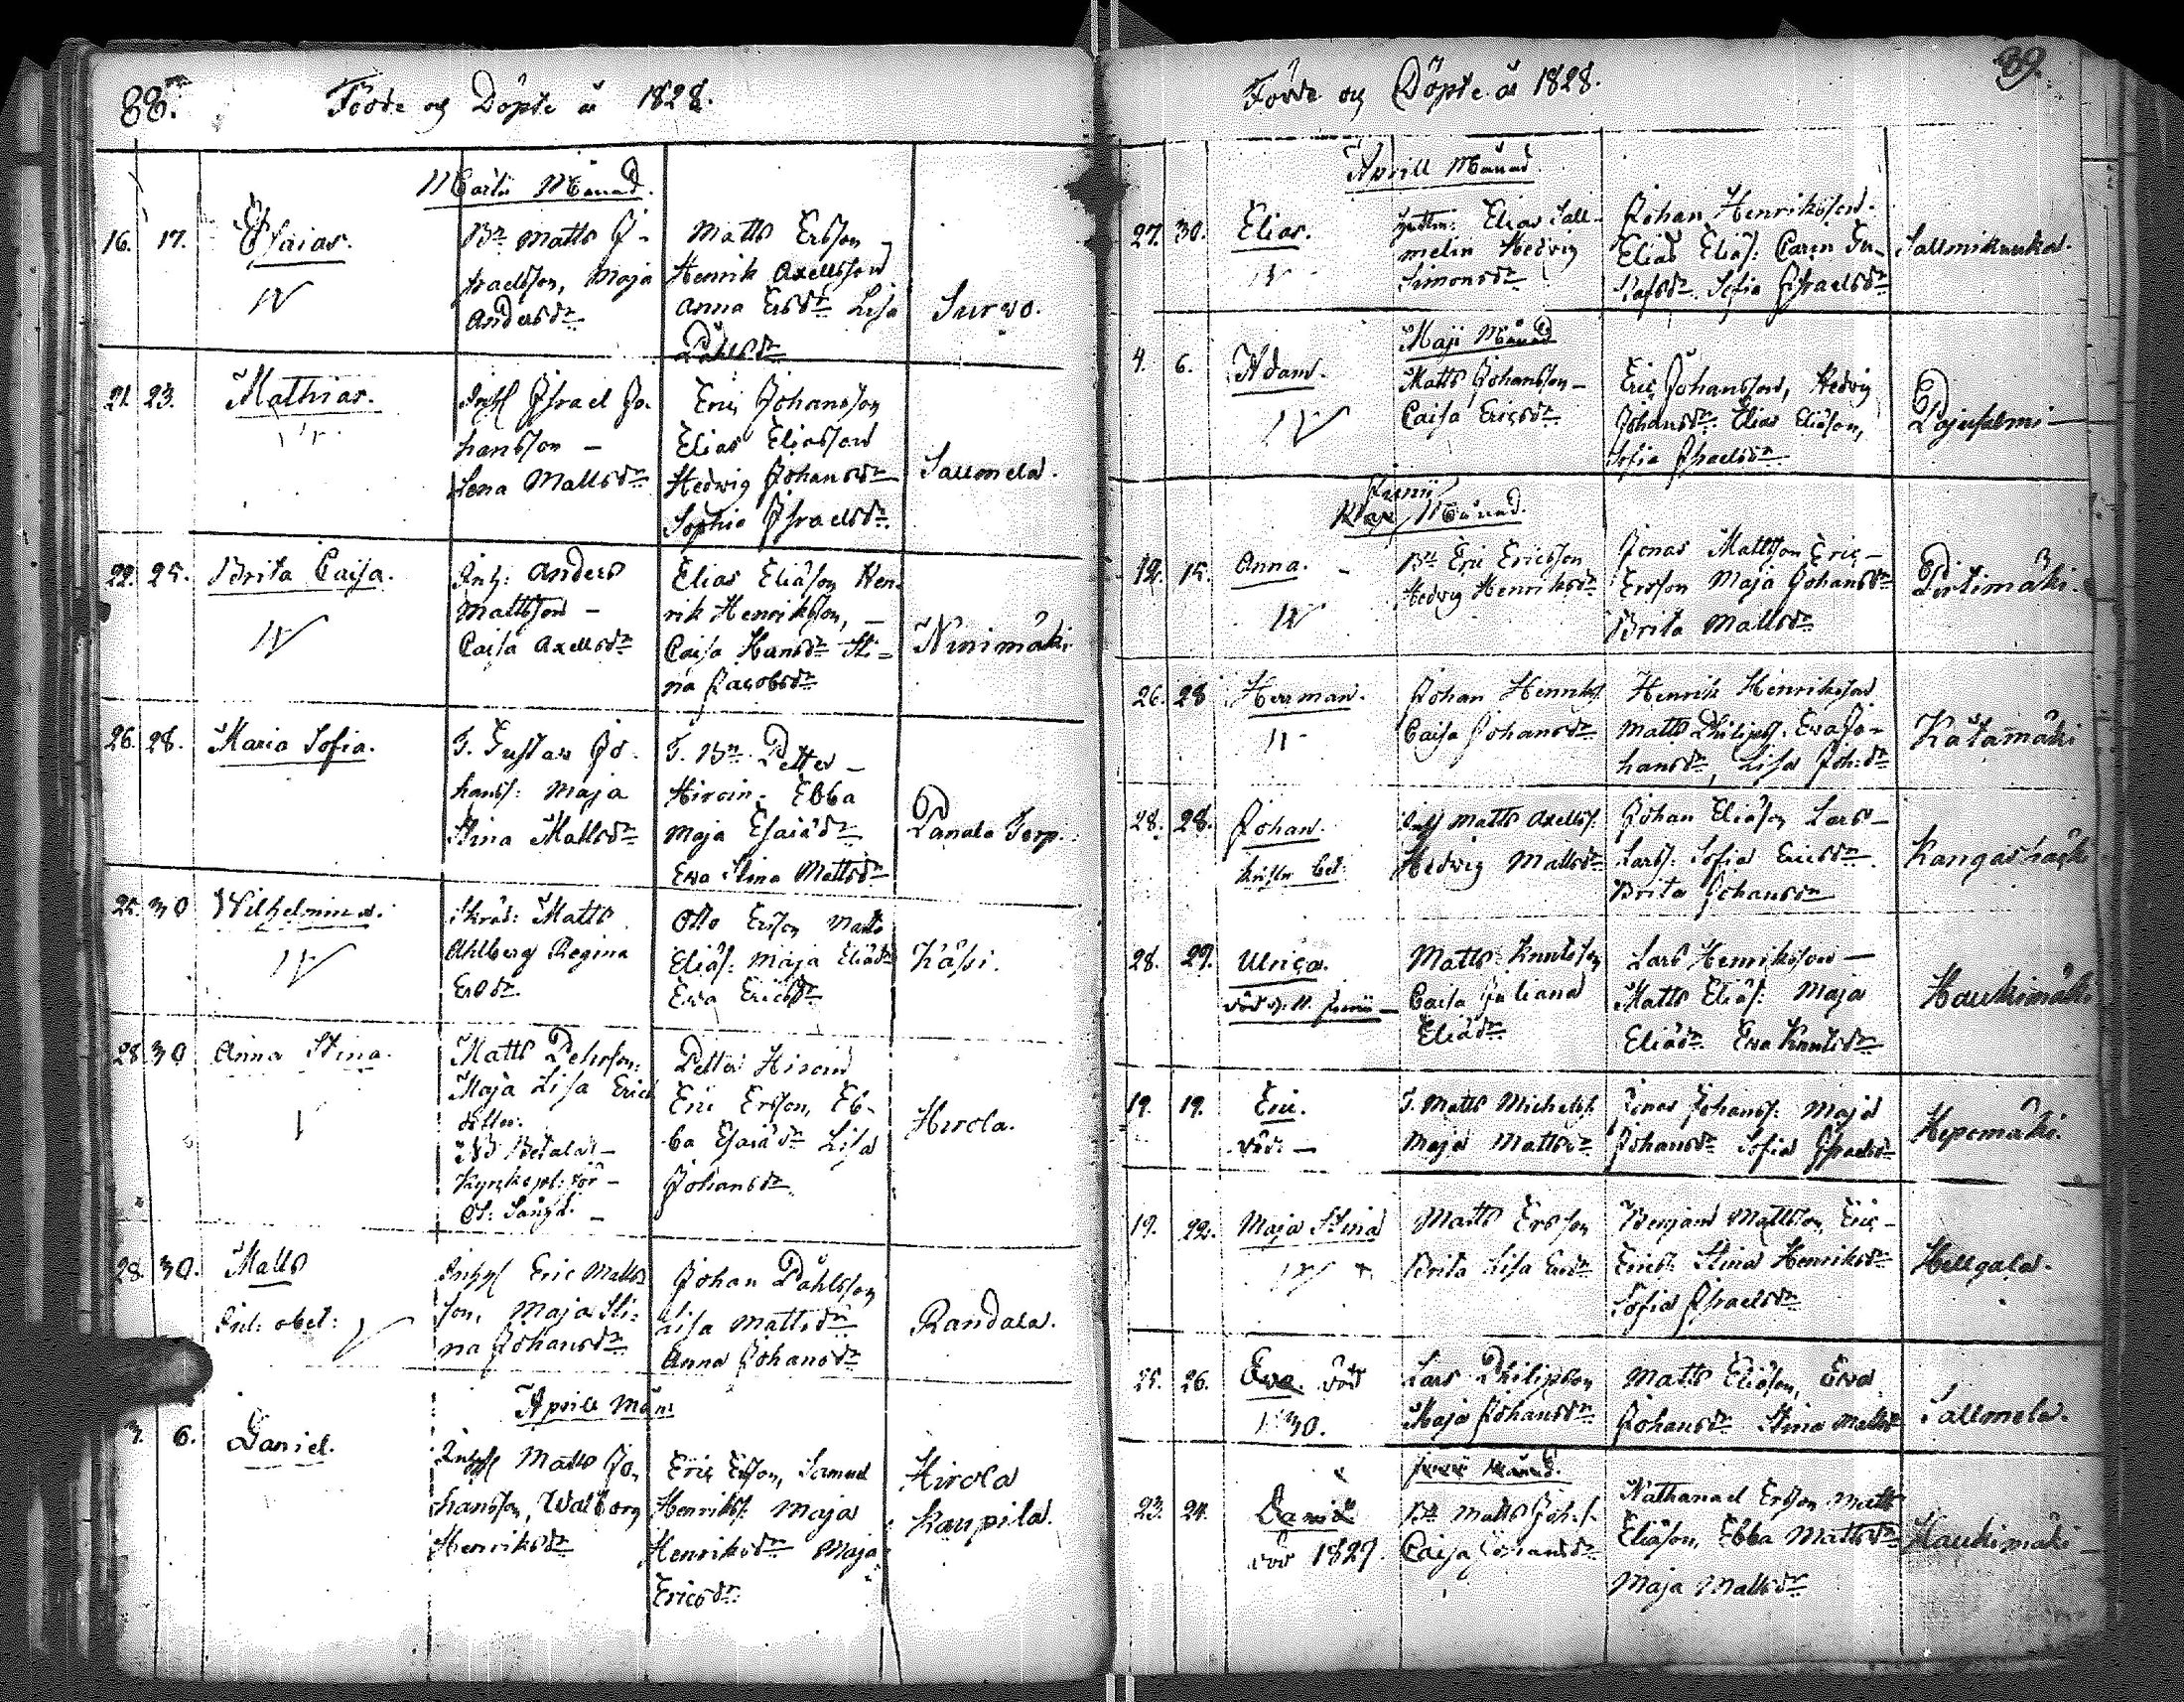 88.
Födde og Döpte år 1828.
Martii Månad.
16. 17. Esaias.
Bn Matts I-
sraelsson, Maja
Andersdr
Matts Ersson
Henrik Axellsson
Anna Ersdr Lisa
Påhlsdr
Survo.
21. 23. Mathias.
Inhs Israel Jo-
hansson -
Lena Mattsdr
Eric Johansson
Elias Eliasson
Hedwig Johansdr
Sophia Israelsdr.
Sallmela.
22. 25. Brita Caisa.
Inh: Anders
Mattsson -
Caisa Axellsdr
Elias Eliäson Hen-
rik Henriksson, -
Caisa Hansdr Sti=
na Jacobsdr
Ninimäki
26. 28. Maria Sofia.
T. Gustav Jo-
hans: Maja
Stina Mattsdr
T. Bn Petter -
Hiroin. Ebba
Maja Esaiädr
Eva Stina Mattsdr
Panala Torp.
25. 30 Wilhelmina.
Skräd: Matts
Ahlberg Regina
Ersdr.
Otto Ersson Matts
Eliäs: Maja Eliädr
Eva Ericsdr
Kåssi.
28 30 Anna Stina.
Matts Pehrsson.
Maja Lisa Erics
dotter.
NB Betalar -
Petter Hiroin
Eric Ersson, Eb-
ba Esaiädr Lisa
Johansdr.
Hirola.
28. 30. Matts
Inhs Eric Matts
son, Maja Sti-
na Johansdr
Johan Påhlsson
Caisa Mattsdr
Anna Johansdr
Randala.
Aprill Mån:
3. 6. Daniel.
Inhs Matts Jo-
hansson, Walborg
Henriksdr
Eric Ersson, Samuel
Henrikss: Maja
Henriksdr Maja
Ericsdr.
Hirola
Kaupila.
89.
Födde og Döpte år 1828.
Aprill Månad.
27. 30. Elias.
Elias Sall-
melin Hedvig
Simonsdr
Johan Henriksson.
Elias Eliäs: Caren Gu-
stafsdr. Sofia Israelsdr
Maji Månad
4. 6. Adam.
Matts Johansson -
Caisa Ericsdr.
Eric Johansson, Hedvig
Johansdr. Elias Eliäson,
Sofia Israelsdr.
Pajusalmi
Junii
Månad.
12. 15. Anna.
Bn Eric Ericsson
Hedvig Henriksdr
Jonas Mattsson Eric -
Ersson Maja Johansdr
Brita Mattsdr
Pertimäki.
26. 28 Herman.
Johan Henrikss
Caisa Johansdr
Henrik Henriksson
Matts Philips. Eva Jo-
hansdr, Lisa Joh:dr
Kåtamäki
28. 28. Johan.
Inhs Matts Axells.
Hedvig Mattsdr
Johan Eliäson Lars -
Larss: Sofia Ericsdr.
Brita Johansdr
28. 29. Ulrica.
Matts Knutsson
Caisa Juliana
Eliädr.
Lars Henriksson -
Matts Eliäs: Maja
Eliädr. Eva Knutsdr
Haukimäki
19. 19. Eric.
T. Matts Michelss.
Maja Mattsdr
Jonas Johanss. Maja
Johansdr Sofia Israelsdr
Hepomäki.
19. 22. Maja Stina
Matts Ersson
Brita Lisa Ersdr
Benjam Mattsson, Eric -
Erics: Stina Henriksdr
Sofia Israelsdr
Hellgala.
25. 26. Eva. död
1830.
Lars Philipsson
Maja Johansdr.
Matts Eliäson, Eva
Johansdr Stina Mattsdr
Sallmela.
Junii Månad.
23. 24. Daniel
död 1829.
Bn Matts Joh.s.
Caisa Johansdr.
Nathanael Ersson Matts
Eliäson, Ebba Mattsdr
Maja Mattsdr
Haukimäki